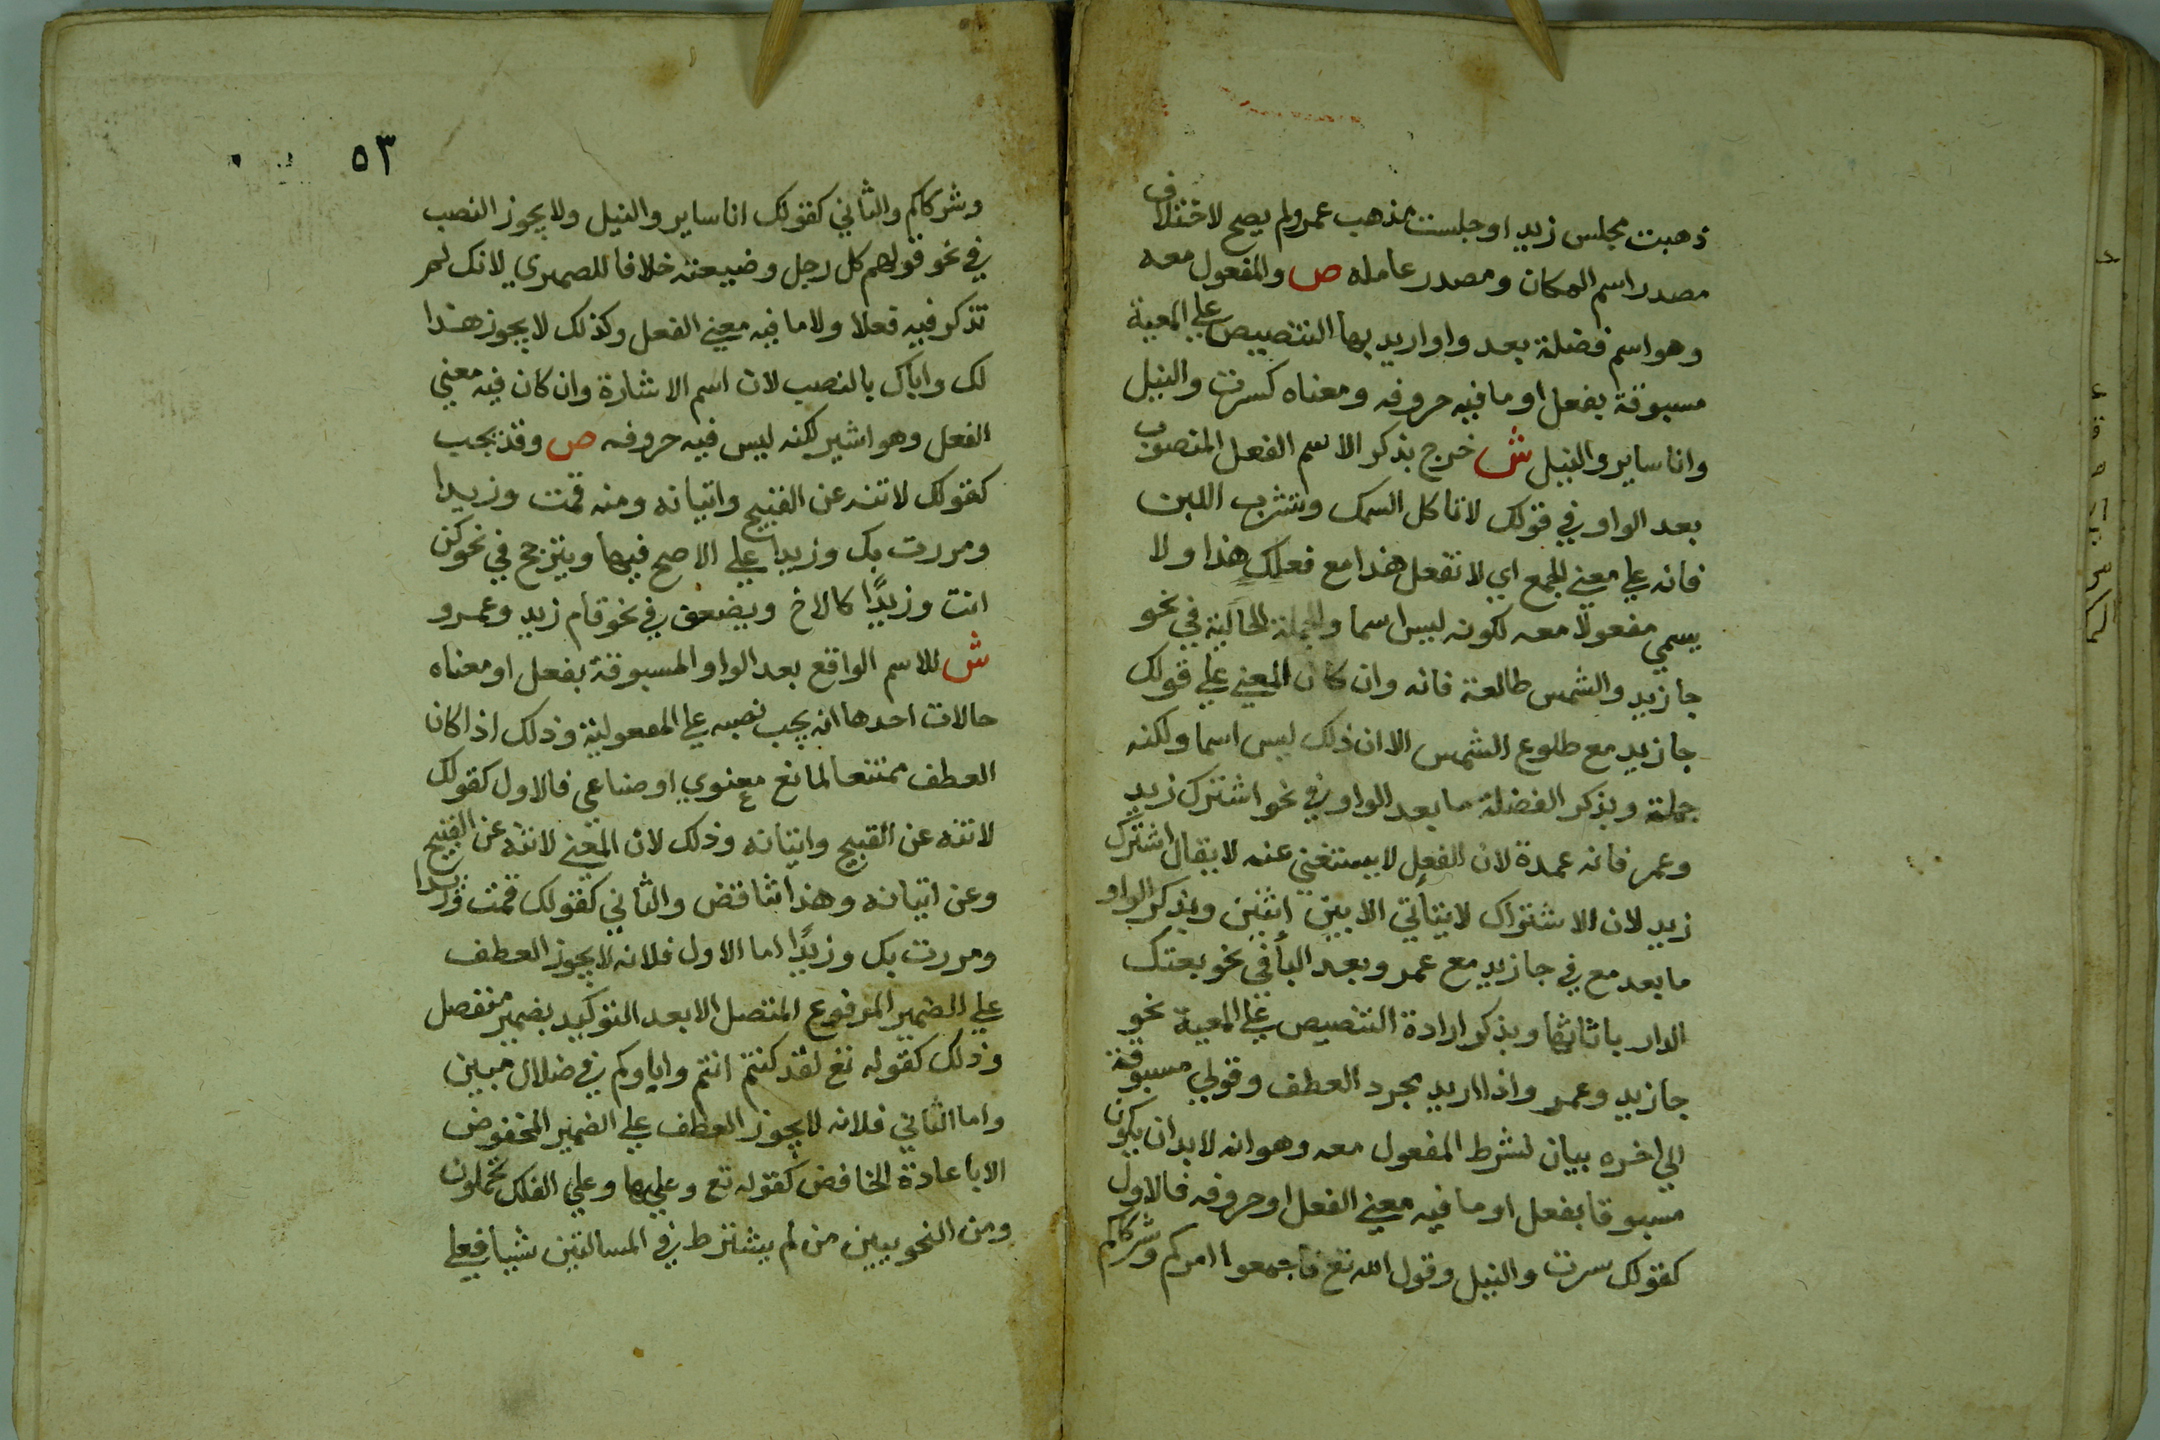 ذهبت مجلس زيد او جلست مذهب عمرو لم يصح لاختلاف
مصدر اسم المكان ومصدر عامله ص والمفعول معه
وهو اسم فضلة بعد واو اريد بها التنصيص علي المعية
مسبوقة بفعل او ما فيه حروفه ومعناه كسرت والنيل
وانا ساير والنيل ش خرج بذكر الاسم الفعل المنصوب
بعد الواو في قولك لا تاكل السمك وتشرب اللبن
فانه علي معني الجمع اي لا تفعل هذا مع فعلك هذا ولا
يسمي مفعولا معه لكونه ليس اسما والجملة الحالية في نحو
جا زيد والشمس طالعة فانه وان كان المعني علي قولك
جا زيد مع طلوع الشمس الا ان ذلك ليس اسما ولكنه
جملة وبذكر الفضلة ما بعد الواو في نحو اشترك زيد
وعمر فانه عمدة لان الفعل لا يستغني عنه لا يقال اشترك
زيد لان الاشتراك لا يتأتي الا بين إثنين وبذكر الواو
ما بعد مع في جا زيد مع عمر وبعد البأ في نحو بعتك
الدار باثاثها وبذكر ارادة التنصيص علي المعية نحو
جا زيد وعمر واذا اريد مجرد العطف وقولي مسبوقة
الي اخره بيان لشرط المفعول معه وهو انه لابد ان يكون
مسبوقا بفعل او ما فيه معني الفعل او حروفه فالاول
كقولك سرت والنيل وقول الله تع فاجمعوا امركم وشركاكم
٥٣
وشركاكم والثاني كقولك انا ساير والنيل ولا يجوز النصب
في نحو قولهم كل رجل وضيعته خلافا للصمري لانك لم
تذكر فيه فعلا ولا ما فيه معني الفعل وكذلك لا يجوز هذا
لك واباك بالنصب لان اسم الاشارة وان كان فيه معني
الفعل وهو اشير لكنه ليس فيه حروفه ص وقد يجب
كقولك لا تنه عن القبيح واتيانه ومنه قمت وزيدا
ومررت بك وزيدا علي الاصح فيهما ويترجح في نحو كن
انت وزيدًا كالاخ ويضعف في نحو قام زيد وعمرو
ش للاسم الواقع بعد الواو المسبوقة بفعل او معناه
حالات احدها انه يجب نصبه علي المفعولية وذلك اذا كان
العطف ممتنعا لمانع معنوي او صناعي فالاول كقولك
لا تنه عن القبيح واتيانه وذلك لان المعني لا تنه عن القبيح
وعن اتيانه وهذا تناقض والثاني كقولك قمت وزيدا
ومررت بك وزيدًا اما الاول فلانه لا يجوز العطف
علي الضمير المرفوع المتصل الا بعد التوكيد بضمير منفصل
وذلك كقوله تع لقد كنتم انتم واباوكم في ضلال مبين
واما الثاني فلانه لا يجوز العطف علي الضمير المخفوض
الا باعادة الخافض كقوله تع وعليها وعلي الفلك تحملون
ومن النحويين من لم يشترط في المسالتين شيا فعلي